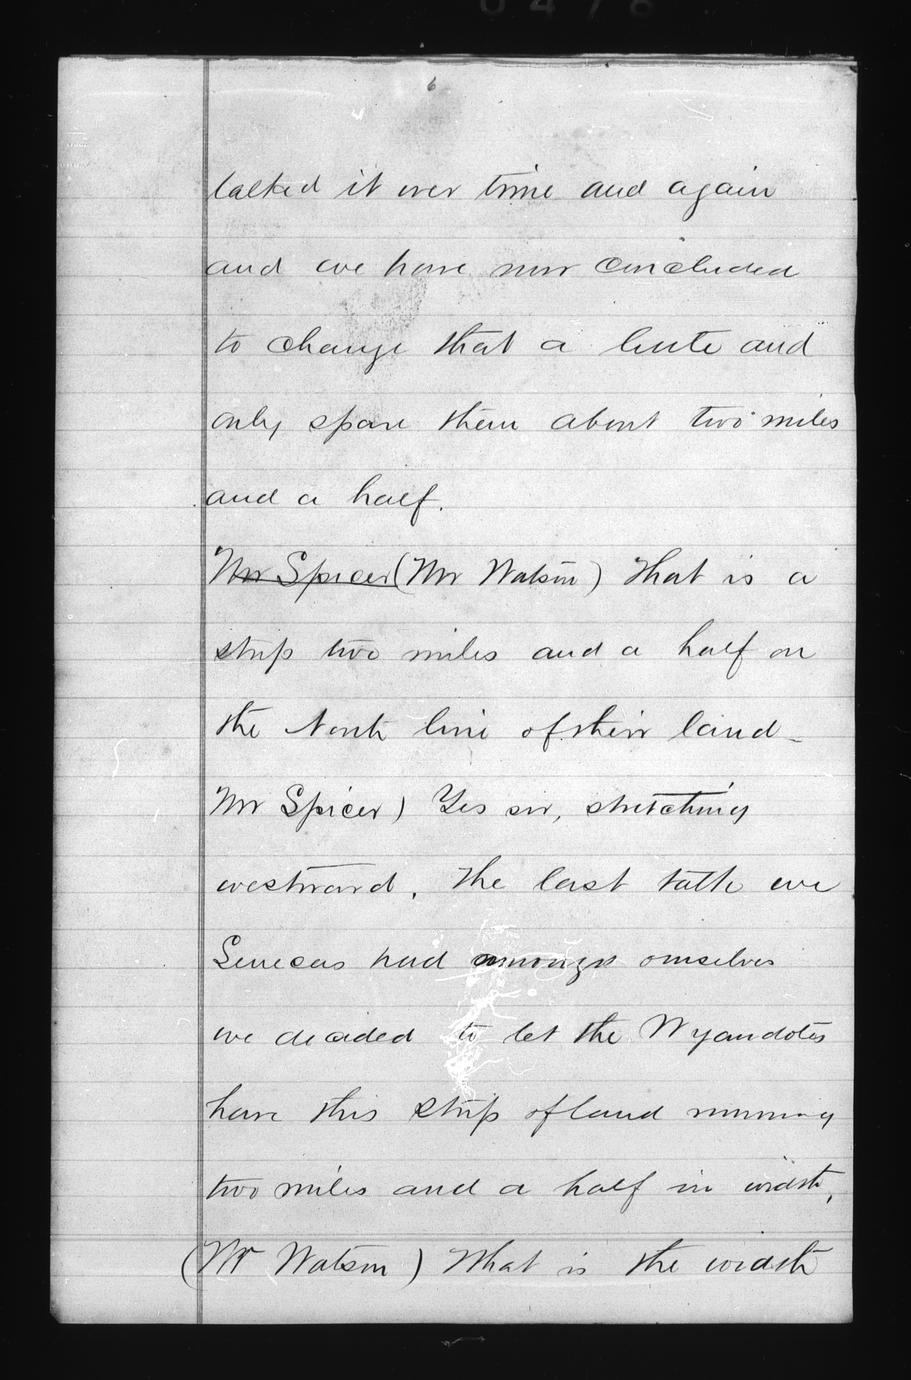 0476
6
talked it over time and again
and we have now concluded
to change that a little and
only spare them about two miles
and a half.
Mr Spicer (Mr Watson) That is a
strip two miles and a half on
the North line of their land -
Mr Spicer) Yes sir, stretching
westward. The last talk we
Senecas had amongst ourselves
we decided to let the Wyandotes
have this strip of land running
two miles and a half in width,
(Mr Watson) What is the width